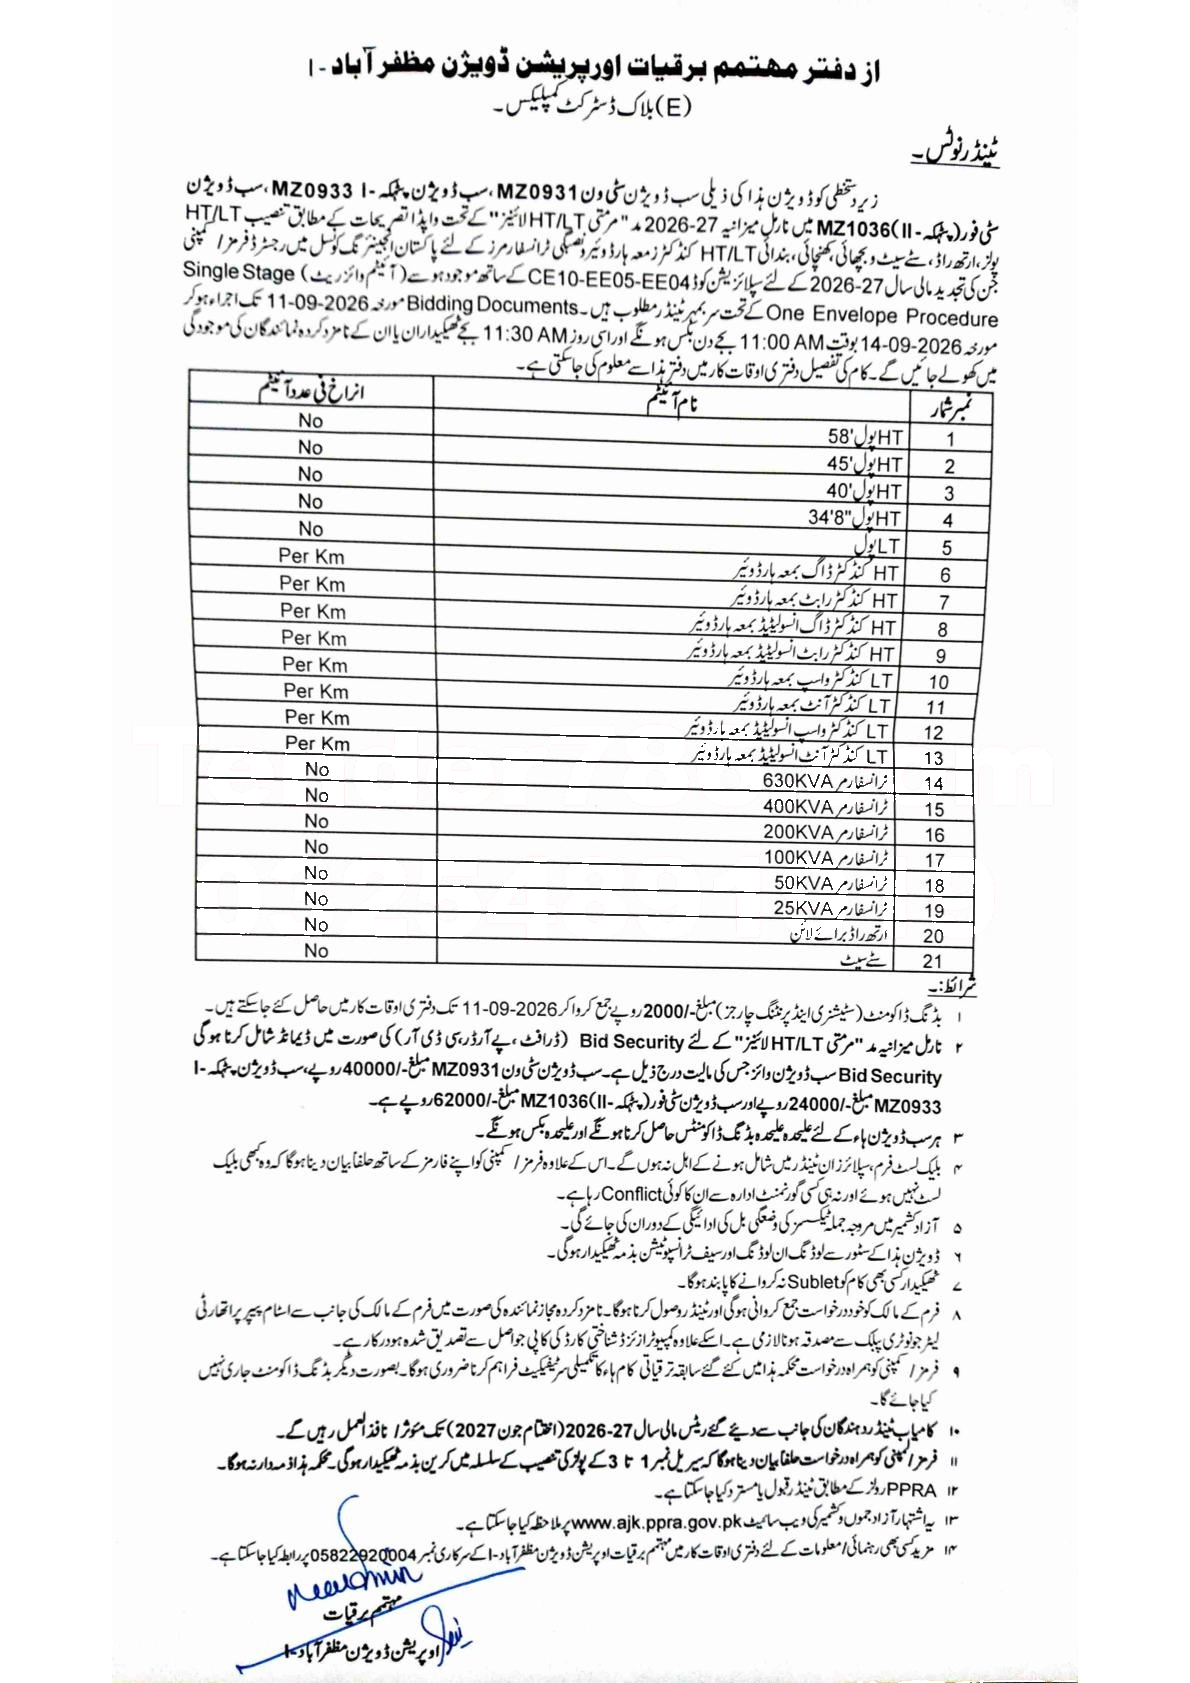 از دفتر مہتمم برقیات اورپریشن ڈویژن مظفر آباد - I
(E) بلاک ڈسٹرکٹ کمپلیکس۔
ٹینڈر نوٹس۔
زیر دستخطی کو ڈویژن ہذا کی ذیلی سب ڈویژن سٹی ون MZ0931، سب ڈویژن پٹہکہ -I MZ0933، سب ڈویژن
سٹی فور (پٹہکہ -II) MZ1036 میں نارمل میزانیہ 27-2026 مد "مرمتی HT/LT لائینز" کے تحت واپڈا تصریحات کے مطابق تنصیب HT/LT
پولز، ارتھ راڈ، سٹے سیٹ و بچھائی، کھنچائی، بندائی HT/LT کنڈکٹرز معہ ہارڈوئیر و تنصیبگی ٹرانسفارمرز کے لئے پاکستان انجینئرنگ کونسل میں رجسٹرڈ فرمز / کمپنی
جن کی تجدید مالی سال 27-2026 کے لئے سپلائزیشن کوڈ CE10-EE05-EE04 کے ساتھ موجود ہو سے (آئیٹم وائز ریٹ) Single Stage
One Envelope Procedure کے تحت سر بمہر ٹینڈر مطلوب ہیں۔ Bidding Documents مورخہ 11-09-2026 تک اجراء ہو کر
مورخہ 14-09-2026 بوقت 11:00 AM بجے دن بکس ہونگے اور اسی روز 11:30 AM بجے ٹھیکیداران یا ان کے نامزد کردہ نمائندگان کی موجودگی
میں کھولے جائیں گے۔ کام کی تفصیل دفتری اوقات کار میں دفتر ہذا سے معلوم کی جاسکتی ہے۔
نمبر شمار نام آئیٹم انراخ فی عدد آئیٹم
1 HT پول '58 No
2 HT پول '45 No
3 HT پول '40 No
4 HT پول "8'34 No
5 LT پول No
6 HT کنڈکٹر ڈاگ بمعہ ہارڈوئیر Per Km
7 HT کنڈکٹر رابٹ بمعہ ہارڈوئیر Per Km
8 HT کنڈکٹر ڈاگ انسولیٹیڈ بمعہ ہارڈوئیر Per Km
9 HT کنڈکٹر رابٹ انسولیٹیڈ بمعہ ہارڈوئیر Per Km
10 LT کنڈکٹر واسپ بمعہ ہارڈوئیر Per Km
11 LT کنڈکٹر آنٹ بمعہ ہارڈوئیر Per Km
12 LT کنڈکٹر واسپ انسولیٹیڈ بمعہ ہارڈوئیر Per Km
13 LT کنڈکٹر آنٹ انسولیٹیڈ بمعہ ہارڈوئیر Per Km
14 ٹرانسفارمر 630KVA No
15 ٹرانسفارمر 400KVA No
16 ٹرانسفارمر 200KVA No
17 ٹرانسفارمر 100KVA No
18 ٹرانسفارمر 50KVA No
19 ٹرانسفارمر 25KVA No
20 ارتھ راڈ برائے لائن No
21 سٹے سیٹ No
شرائط:۔
۱ بڈنگ ڈاکومنٹ (سٹیشنری اینڈ پرنٹنگ چارجز) مبلغ -/2000 روپے جمع کروا کر 11-09-2026 تک دفتری اوقات کار میں حاصل کئے جا سکتے ہیں۔
۲ نارمل میزانیہ مد "مرمتی HT/LT لائینز" کے لئے Bid Security (ڈرافٹ، پے آرڈر، سی ڈی آر) کی صورت میں ڈیمانڈ شامل کرنا ہوگی
Bid Security سب ڈویژن وائز جس کی مالیت درج ذیل ہے۔ سب ڈویژن سٹی ون MZ0931 مبلغ -/40000 روپے، سب ڈویژن پٹہکہ -I
MZ0933 مبلغ -/24000 روپے اور سب ڈویژن سٹی فور (پٹہکہ -II) MZ1036 مبلغ -/62000 روپے ہے۔
۳ ہر سب ڈویژن ہاء کے لئے علیحدہ علیحدہ بڈنگ ڈاکومنٹس حاصل کرنا ہونگے اور علیحدہ بکس ہونگے۔
۴ بلیک لسٹ فرم، سپلائرز ان ٹینڈر میں شامل ہونے کے اہل نہ ہوں گے۔ اس کے علاوہ فرمز / کمپنی کو اپنے فارمز کے ساتھ حلفا بیان دینا ہوگا کہ وہ کبھی بلیک
لسٹ نہیں ہوئے اور نہ ہی کسی گورنمنٹ ادارہ سے ان کا کوئی Conflict رہا ہے۔
۵ آزاد کشمیر میں مروجہ جملہ ٹیکسز کی وضعگی بل کی ادائیگی کے دوران کی جائے گی۔
۶ ڈویژن ہذا کے سٹور سے لوڈنگ ان لوڈنگ اور سیف ٹرانسپوٹیشن بذمہ ٹھیکیدار ہوگی۔
۷ ٹھیکیدار کسی بھی کام کو Sublet نہ کروانے کا پابند ہوگا۔
۸ فرم کے مالک کو خود درخواست جمع کروانی ہوگی اور ٹینڈر وصول کرنا ہوگا۔ نامزد کردہ مجاز نمائندہ کی صورت میں فرم کے مالک کی جانب سے اسٹام پیپر پر اتھارٹی
لیٹر جو نوٹری پبلک سے مصدقہ ہونا لازمی ہے۔ اسکے علاوہ کمپیوٹرائزڈ شناختی کارڈ کی کاپی جو اصل سے تصدیق شدہ ہو درکار ہے۔
۹ فرمز / کمپنی کو ہمراہ درخواست محکمہ ہذا میں کئے گئے سابقہ ترقیاتی کام ہاء کا تکمیلی سرٹیفکیٹ فراہم کرنا ضروری ہوگا۔ بصورت دیگر بڈنگ ڈاکومنٹ جاری نہیں
کیا جائے گا۔
۱۰ کامیاب ٹینڈر دہندگان کی جانب سے دیئے گئے ریٹس مالی سال 27-2026 (اختتام جون 2027) تک مئوثر / نافذالعمل رہیں گے۔
۱۱ فرمز / کمپنی کو ہمراہ درخواست حلفا بیان دینا ہوگا کہ سیریل نمبر 1 تا 3 کے پولز کی تنصیب کے سلسلہ میں کرین بذمہ ٹھیکیدار ہوگی۔ محکمہ ہذا ذمہ دار نہ ہوگا۔
۱۲ PPRA رولز کے مطابق ٹینڈر قبول یا مسترد کیا جا سکتا ہے۔
۱۳ یہ اشتہار آزاد جموں و کشمیر کی ویب سائیٹ www.ajk.ppra.gov.pk پر ملاحظہ کیا جاسکتا ہے۔
۱۴ مزید کسی بھی رہنمائی / معلومات کے لئے دفتری اوقات کار میں مہتمم برقیات اوپریشن ڈویژن مظفر آباد -I کے سرکاری نمبر 05822920004 پر رابطہ کیا جاسکتا ہے۔
مہتمم برقیات
اوپریشن ڈویژن مظفر آباد -I